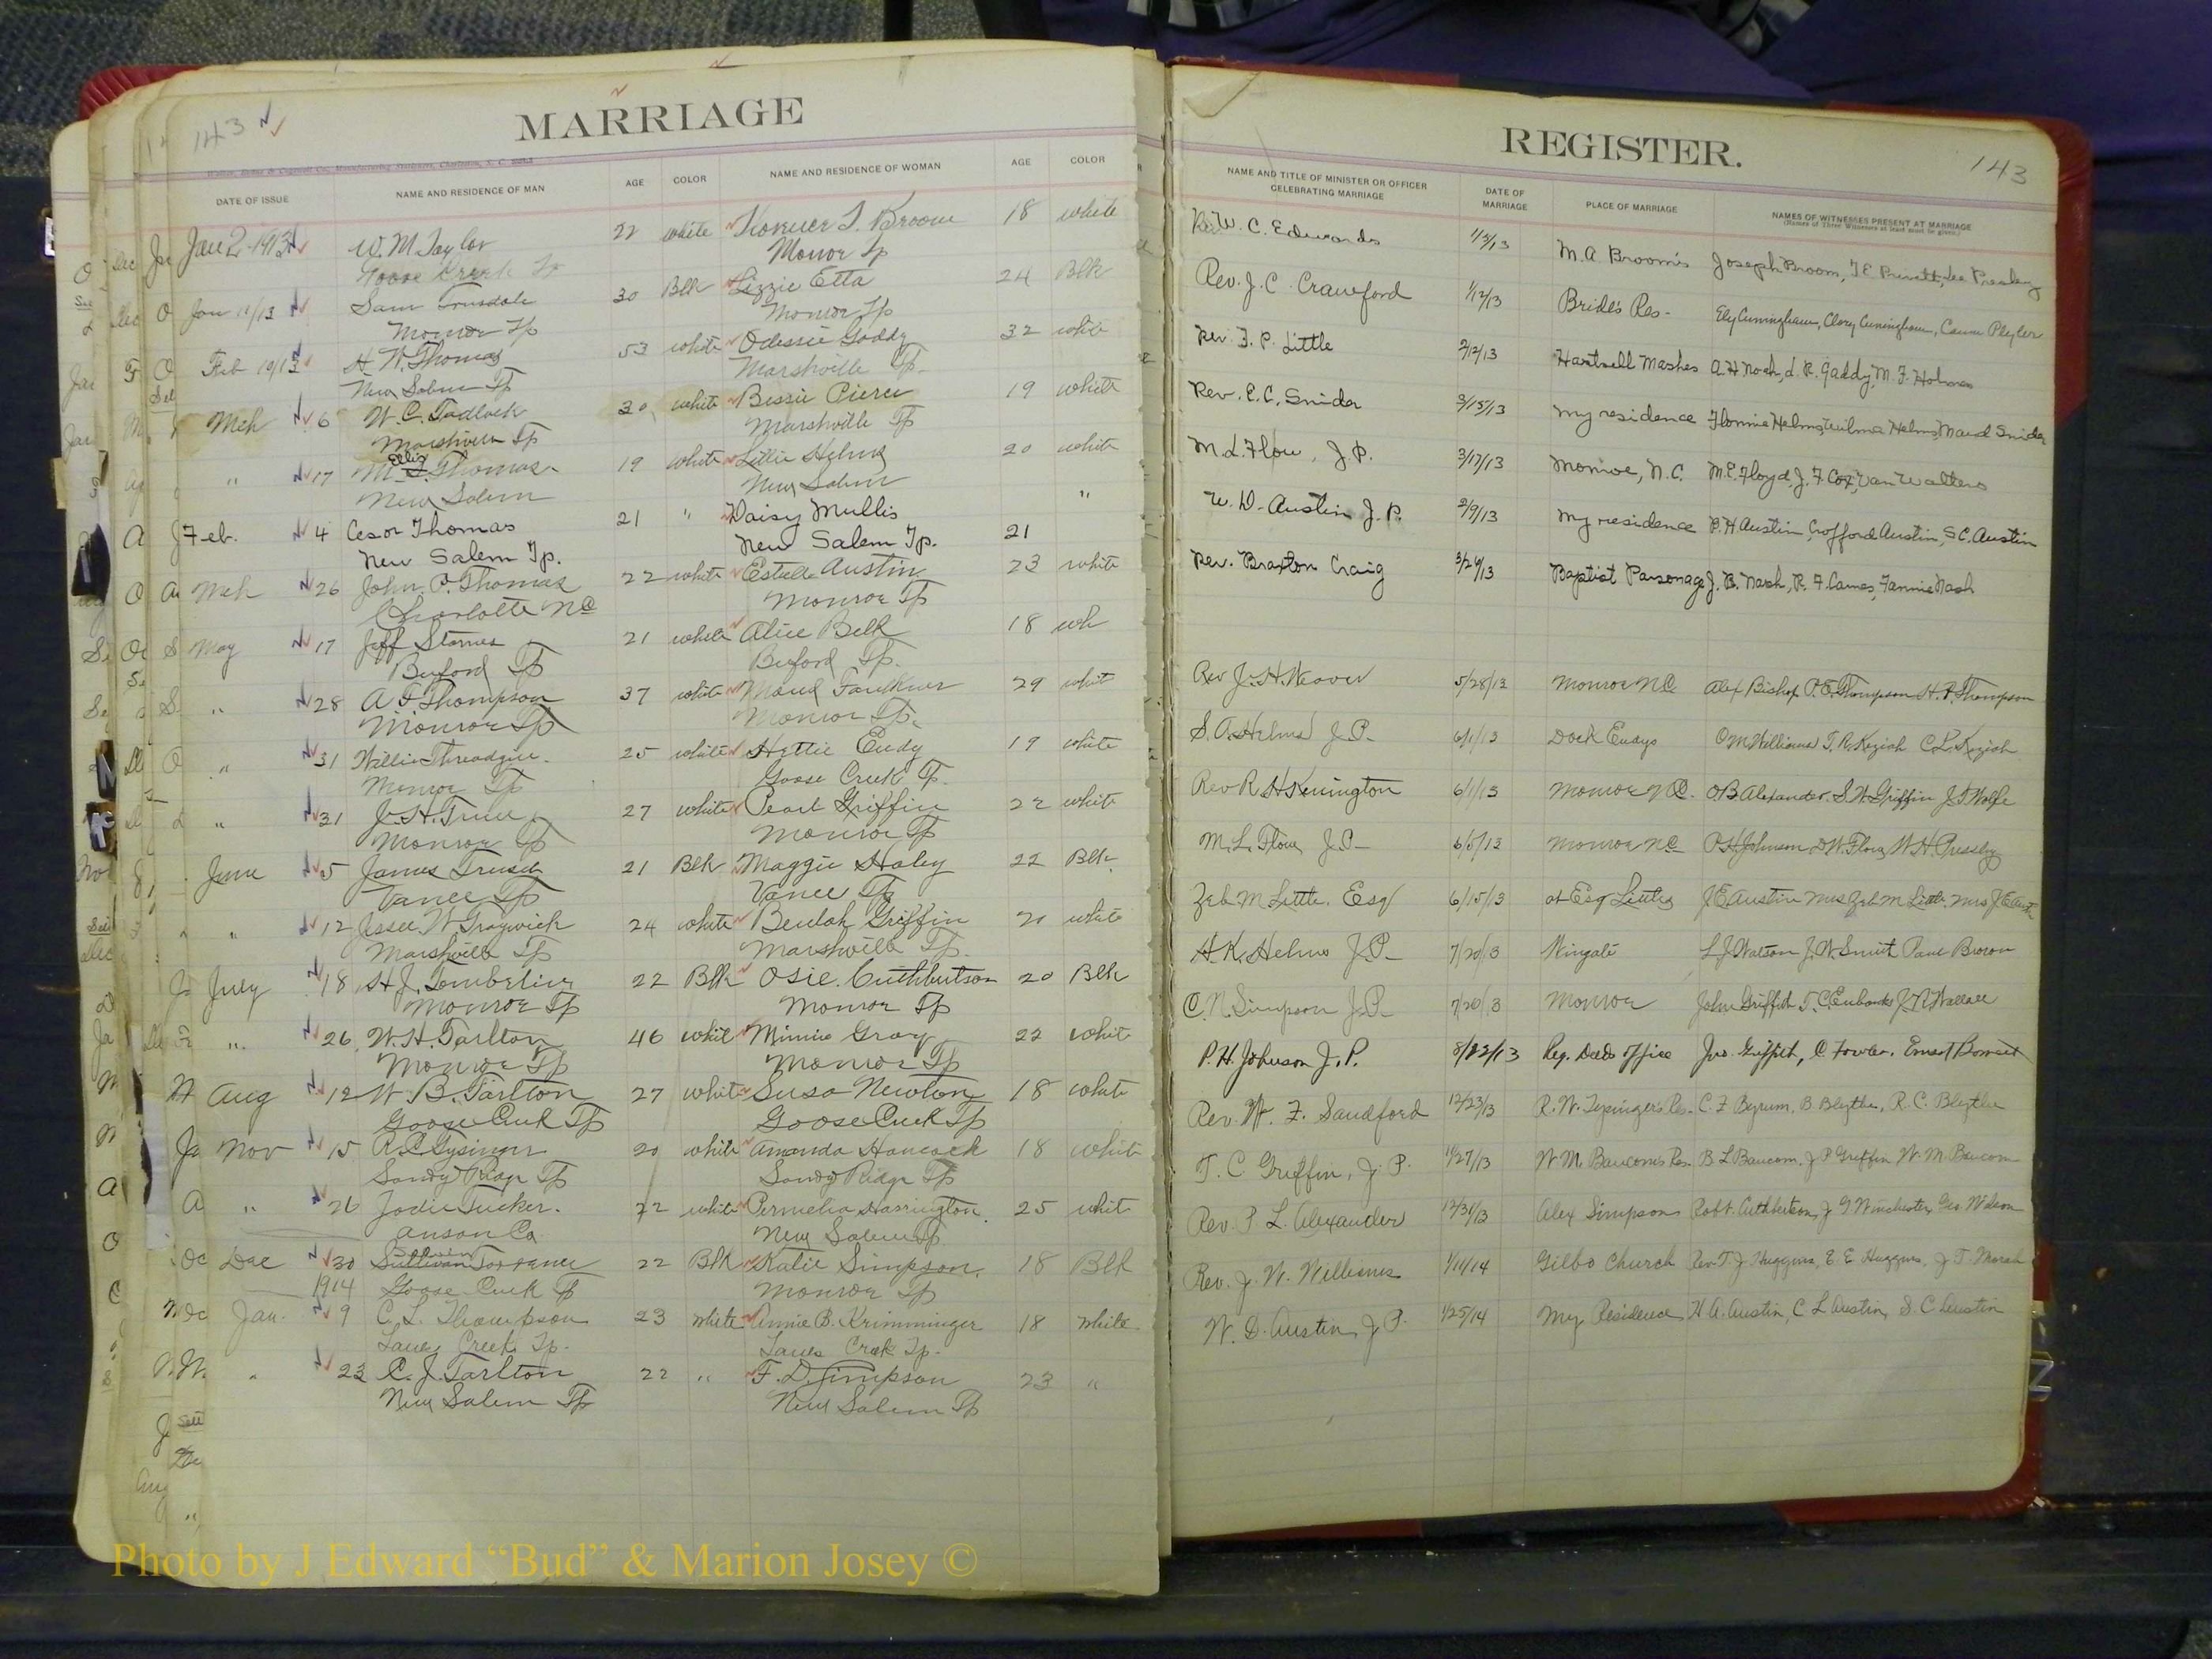 143
MARRIAGE
DATE OF ISSUE NAME AND RESIDENCE OF MAN AGE COLOR NAME AND RESIDENCE OF WOMAN AGE COLOR
Jan 2-1913 W. M. Taylor 22 white Broom 18 white
Goose Creek Tp Monroe Tp
Jan 11/13 Sam 30 Blk Lizzie Etta 24 Blk
Monroe Tp Monroe Tp
Feb 10/13 H. W. Thomas 53 white Odessie Gaddy 32 white
New Salem Tp Marshville Tp
Mch 6 W. C. Tadlock 30 white Bessie Pierce 19 white
Marshville Tp Marshville Tp
" 17 M. Thomas 19 white Lillie Helms 20 white
New Salem New Salem
Feb. 4 Cesor Thomas 21 " Daisy Mullis 21 "
New Salem Tp. New Salem Tp.
Mch 26 John P. Thomas 22 white Estelle Austin 23 white
Charlotte NC Monroe Tp
May 17 Jeff Starnes 21 white Alice Belk 18 wh
Buford Tp Buford Tp.
" 28 A F Thompson 37 white Maud Faulkner 29 whit
Monroe Tp Monroe Tp.
" 31 Willie Threadgill 25 white Hettie Eudy 19 white
Monroe Tp Goose Creek Tp.
" 31 J. H. 27 white Pearl Griffin 22 white
Monroe Tp Monroe Tp
June 5 James 21 Blk Maggie Haley 22 Blk
Vance Tp Vance Tp
" 12 Jesse W. Traywick 24 white Beulah Griffin 20 white
Marshville Tp Marshville Tp.
July 18 H. J. Tomberlin 22 Blk Osie Cuthbertson 20 Blk
Monroe Tp Monroe Tp
" 26 W. H. Tarlton 46 white Minnie Gray 22 whit
Monroe Tp Monroe Tp
Aug 12 W. B. Tarlton 27 white Susa Newton 18 white
Goose Creek Tp Goose Creek Tp
Nov 15 R. C. Tysinger 20 white Amanda Hancock 18 white
Sandy Ridge Tp Sandy Ridge Tp
" 26 Jodie Tucker. 22 white Permelia Harrington 25 whit
Anson Co New Salem Tp.
Dec 30 Sullivan Torrance 22 Blk Katie Simpson. 18 Blk
1914 Goose Creek Tp Monroe Tp
Jan. 9 C. L. Thompson 23 white Annie B. Krimminger 18 white
Lanes Creek Tp. Lanes Creek Tp.
" 23 C. J. Tarlton 22 " F. D. Simpson 23 "
New Salem Tp New Salem Tp
REGISTER.
143
NAME AND TITLE OF MINISTER OR OFFICER CELEBRATING MARRIAGE DATE OF MARRIAGE PLACE OF MARRIAGE NAMES OF WITNESSES PRESENT AT MARRIAGE
(Names of Three Witnesses at least must be given.)
W. C. Edwards M. A. Broom's Joseph Broom,
Rev. J. C. Crawford 1/12/13 Bride's Res- Ely Cuningham, Clory Cuningham, Plyler
Rev. J. P. Little 2/12/13 Hartsell Mashes L. R. Gaddy, M. F. Holmes
Rev. E. C. Snider 3/15/13 My residence Flonnie Helms, Wilma Helms, Maud Snider
M. L. Flow, J. P. 3/17/13 Monroe, N. C. M. E. Floyd, J. F. Cox, Van Walters
W. D. Austin J. P. 2/9/13 My residence B. H Austin, Crofford Austin, S C. Austin
Rev. Braxton Craig 3/26/13 Baptist Parsonage J. B. Nash, Fannie Nash
Rev J. H. Weaver 5/28/13 Monroe NC Alex Bishop P. E. Thompson H. P. Thompson
S. A. Helms J. P. 6/1/13 Dock Eudys O M Williams T. R. Keziah C. L. Keziah
Rev R H Kennington 6/1/13 Monroe NC. O B Alexander. S. W Griffin J. F Wolfe
M. L. Flow J. P. 6/5/13 Monroe NC P. H. Johnson D W. Flow, W. H. Pressly
Zeb M. Little. Esq 6/15/13 at Esq Littles J. E Austin Mrs Zeb M Little. Mrs J. E Austin
H. K. Helms J. P. 7/20/13 Wingate L J Watson Paul Brown
C. N. Simpson J. P. 7/20/13 Monroe John Griffith T. C. Eubanks Wallace
P. H. Johnson J. P. 8/12/13 Reg. Deeds office Jno. Griffith, C Fowler.
Rev. W. F. Sandford 12/23/13 R. W. Tysinger's Res- C. F Byrum, B. Blythe, R. C. Blythe
T. C Griffin, J. P. 11/27/13 W. M. Baucom's Res. B. L Baucom. J P Griffin W. M. Baucom
Rev. P L. Alexander 12/31/13 Alex Simpsons Robt. Cuthbertson, J G Winchester, Geo Wilson
Rev. J. W. Williams 1/11/14 Gilbo Church Rev T. J Huggins, E. E Huggins, J T. Marsh
W. D. Austin, J. P. 1/25/14 My Residence H. A. Austin, C L Austin, S. C. Austin
Photo by J Edward “Bud” & Marion Josey ©